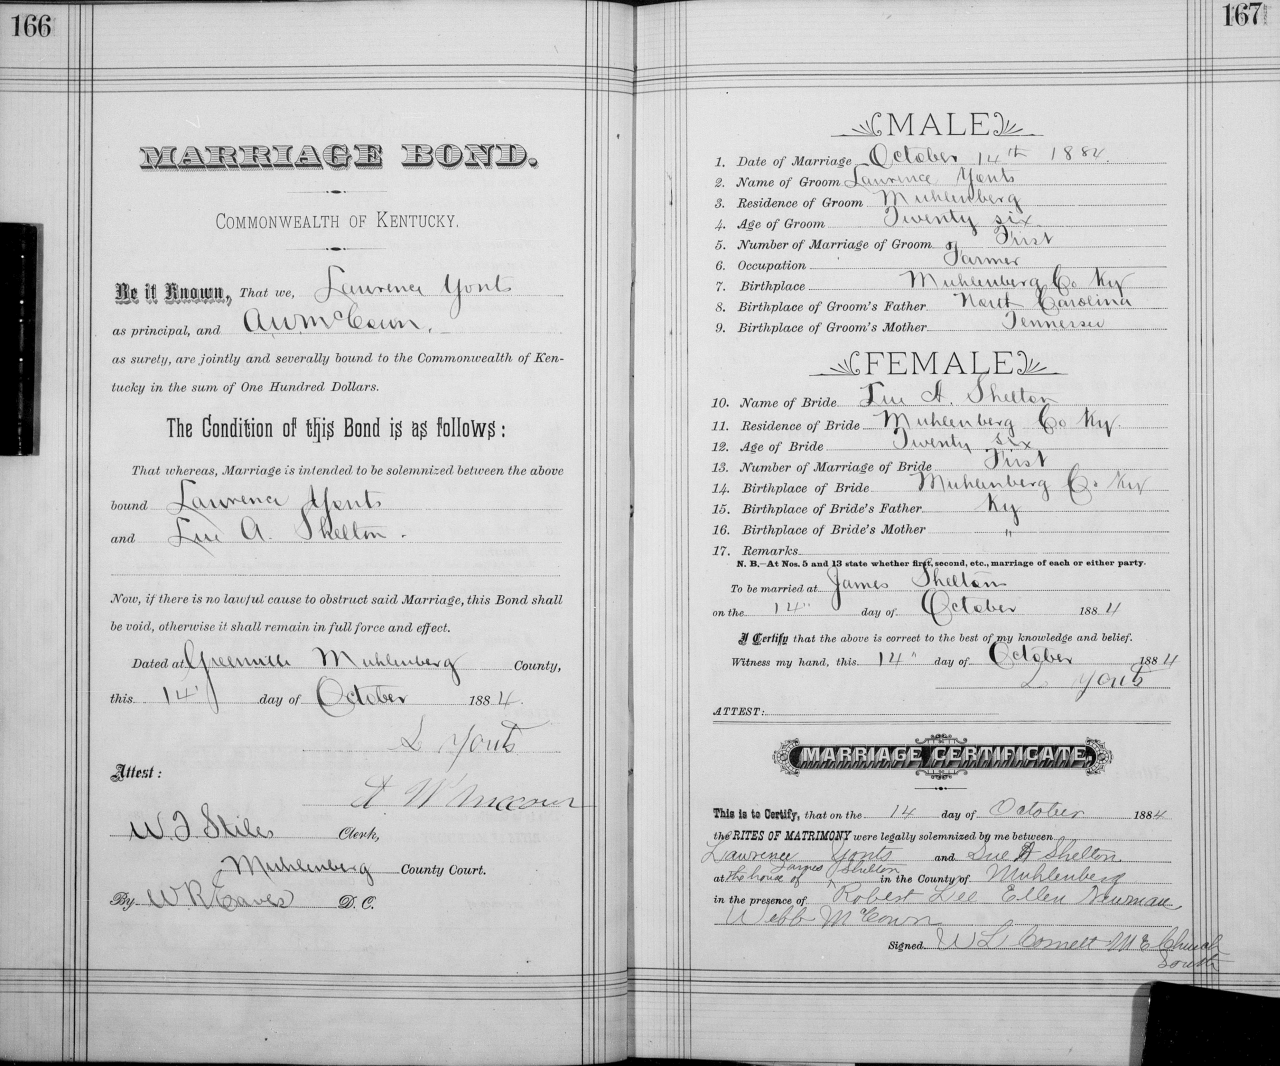 166
MARRIAGE BOND.
COMMONWEALTH OF KENTUCKY.
Be it Known, That we, Lawrence Yonts
as principal, and A W McCown,
as surety, are jointly and severally bound to the Commonwealth of Ken-
tucky in the sum of One Hundred Dollars.
The Condition of this Bond is as follows:
That whereas, Marriage is intended to be solemnized between the above
bound Lawrence Yonts
and Sue A. Shelton.
Now, if there is no lawful cause to obstruct said Marriage, this Bond shall
be void, otherwise it shall remain in full force and effect.
Dated at Greenville Muhlenberg County,
this 14" day of October 1884.
L Yonts
Attest:
A W McCown
W. J Stiles Clerk,
Muhlenberg County Court.
By W R Eaves D. C.
167
MALE
1. Date of Marriage October 14th 1884.
2. Name of Groom Lawrence Yonts
3. Residence of Groom Muhlenberg
4. Age of Groom Twenty six
5. Number of Marriage of Groom First
6. Occupation Farmer
7. Birthplace Muhlenberg Co Ky
8. Birthplace of Groom's Father North Carolina
9. Birthplace of Groom's Mother Tennessee
FEMALE
10. Name of Bride Sue A. Shelton
11. Residence of Bride Muhlenberg Co Ky.
12. Age of Bride Twenty six
13. Number of Marriage of Bride First
14. Birthplace of Bride Muhlenberg Co Ky
15. Birthplace of Bride's Father Ky
16. Birthplace of Bride's Mother "
17. Remarks
N. B.—At Nos. 5 and 13 state whether first, second, etc., marriage of each or either party.
To be married at James Shelton
on the 14" day of October 1884
I Certify that the above is correct to the best of my knowledge and belief.
Witness my hand, this 14" day of October 1884
L Yonts
ATTEST:
MARRIAGE CERTIFICATE.
This is to Certify, that on the 14 day of October 1884
the RITES OF MATRIMONY were legally solemnized by me between
Lawrence Yonts and Sue A Shelton
at the house of James Shelton in the County of Muhlenberg
in the presence of Robert Lee Ellen Newman
Webb McCown
Signed W L Cornett M E Church
South